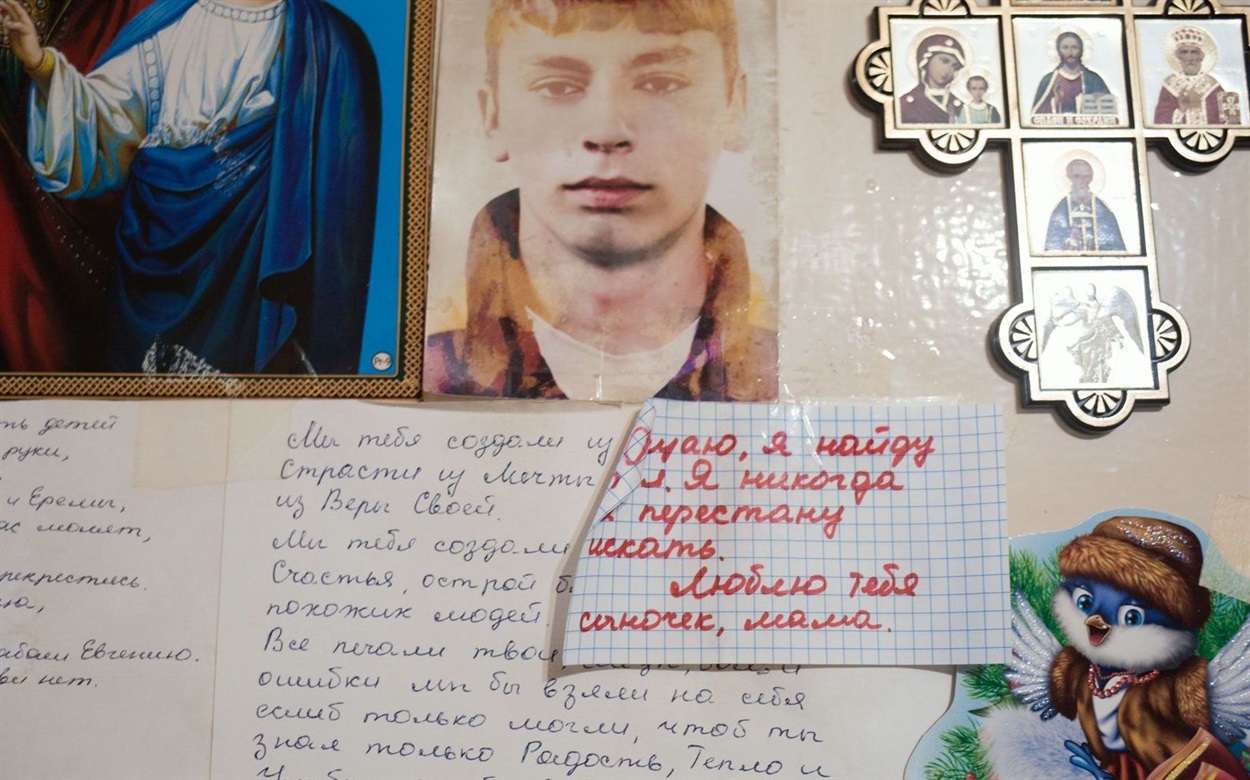 СПАСИ И СОХРАНИ
Рт-9
ть детей
руки,
и Еремы,
ас молят,
рекрестись.
Евгению.
нет.
Мы тебя создали из
Страсти из Мечты
из Веры Своей.
Мы тебя создали
Счастья, острой
похожих людей.
Все печали твои,
ошибки мы бы взяли на себя
еслиб только могли, чтоб ты
знал только Радость, Тепло и
Думаю, я найду
я. Я никогда
перестану
искать.
Люблю тебя
сыночек, мама.